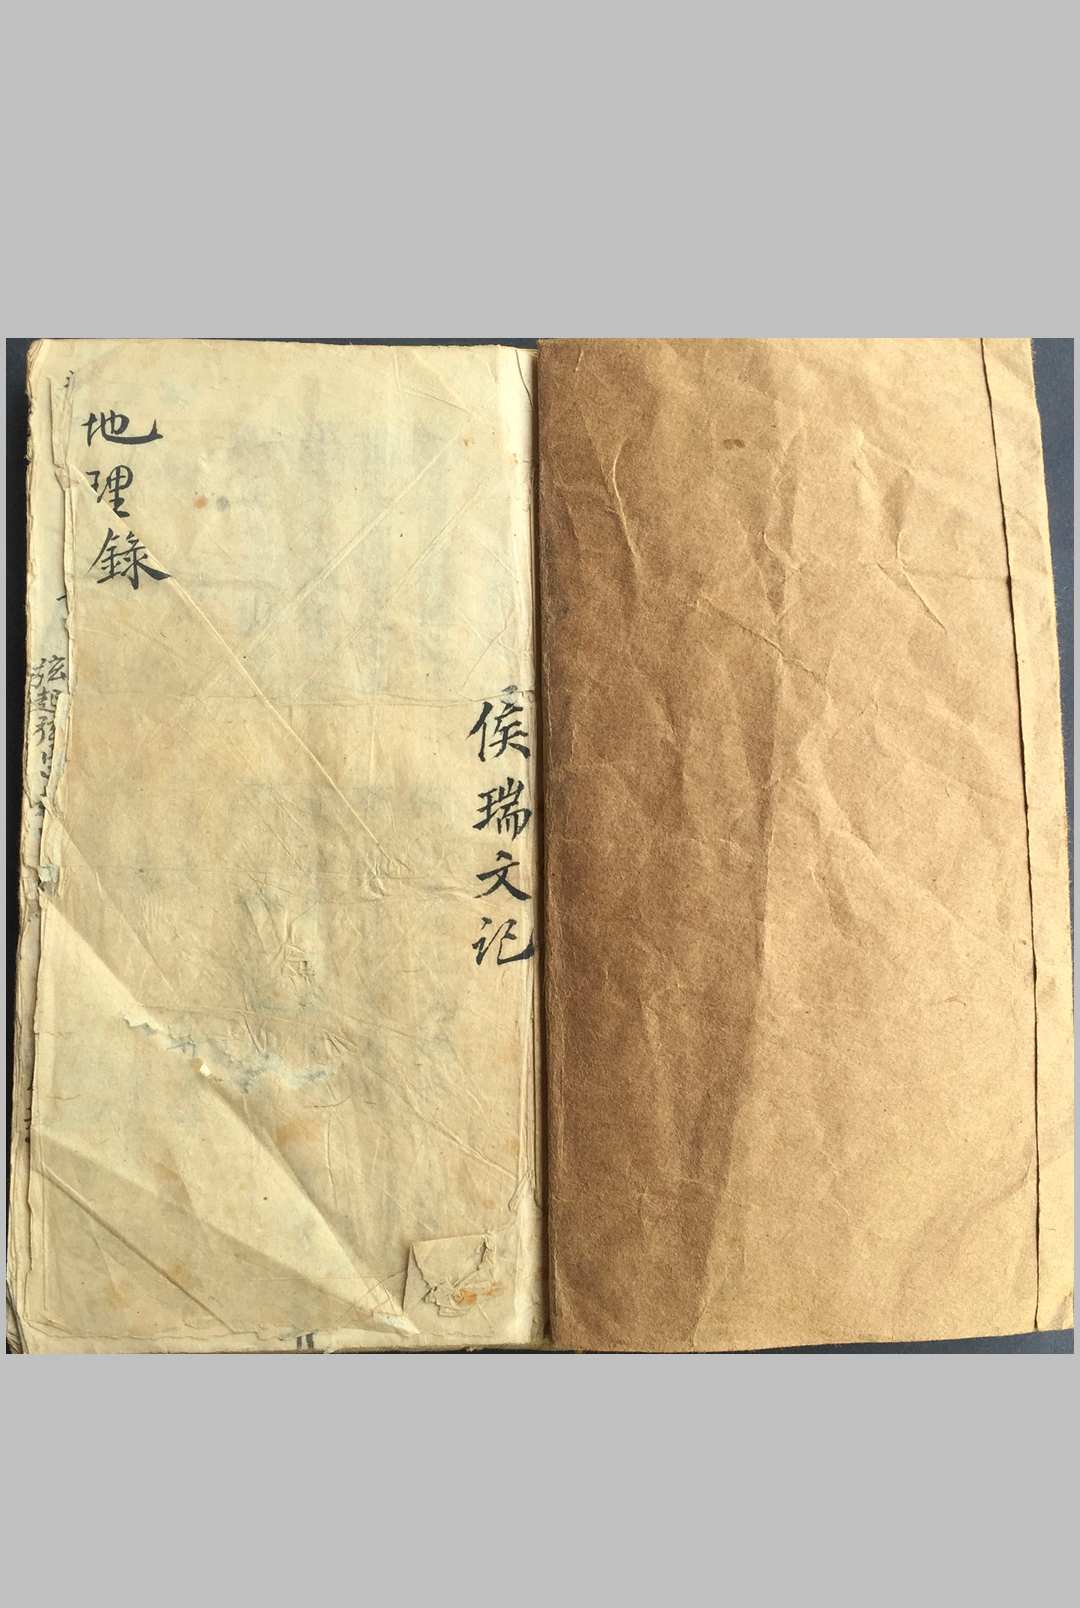 侯瑞文记
地理錄